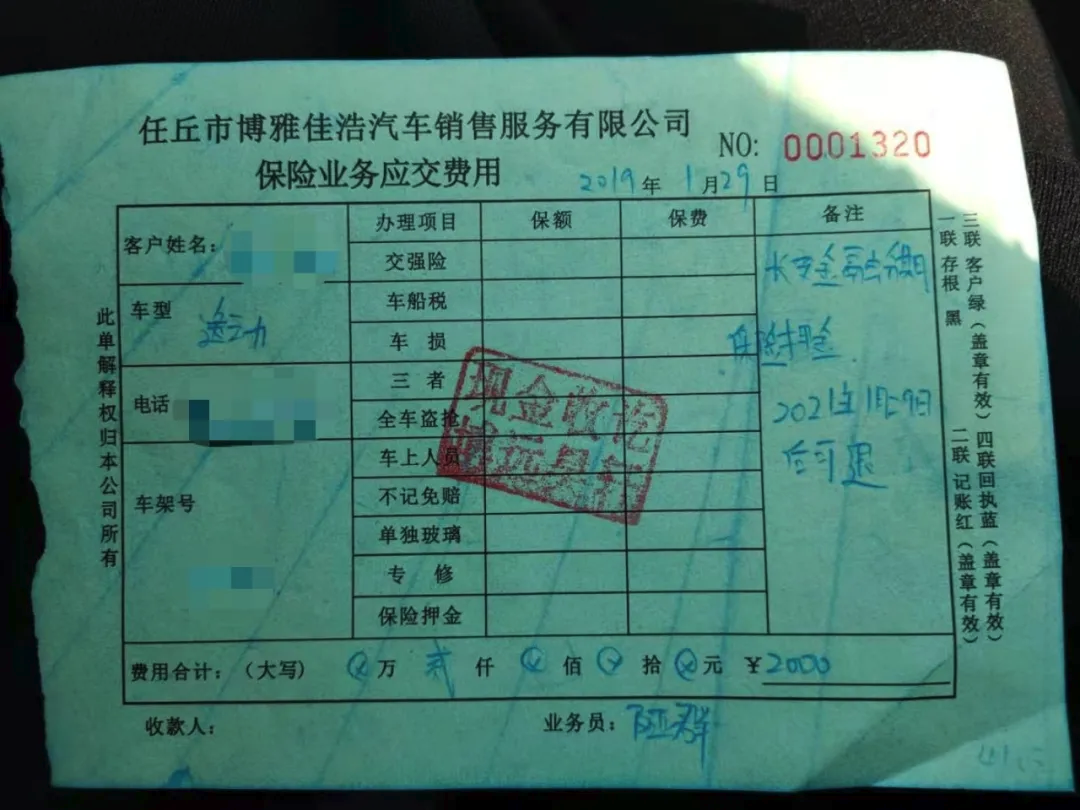 任丘市博雅佳浩汽车销售服务有限公司
NO: 0001320
保险业务应交费用
2019年1月29日
客户姓名:
办理项目 保额 保费 备注
交强险
长安金融
车型
逸动
车船税
车 损
保险押金
三 者
电话
全车盗抢
2021年1月29日
车上人员
后可退
车架号
不记免赔
单独玻璃
专 修
保险押金
现金收讫
费用合计:(大写) ⊗万 贰仟 ⊗佰 ⊗拾 ⊗元 ¥2000
收款人:
业务员:
此单解释权归本公司所有
一联 存根 黑
三联 客户绿(盖章有效)
二联 记账红(盖章有效)
四联回执蓝(盖章有效)